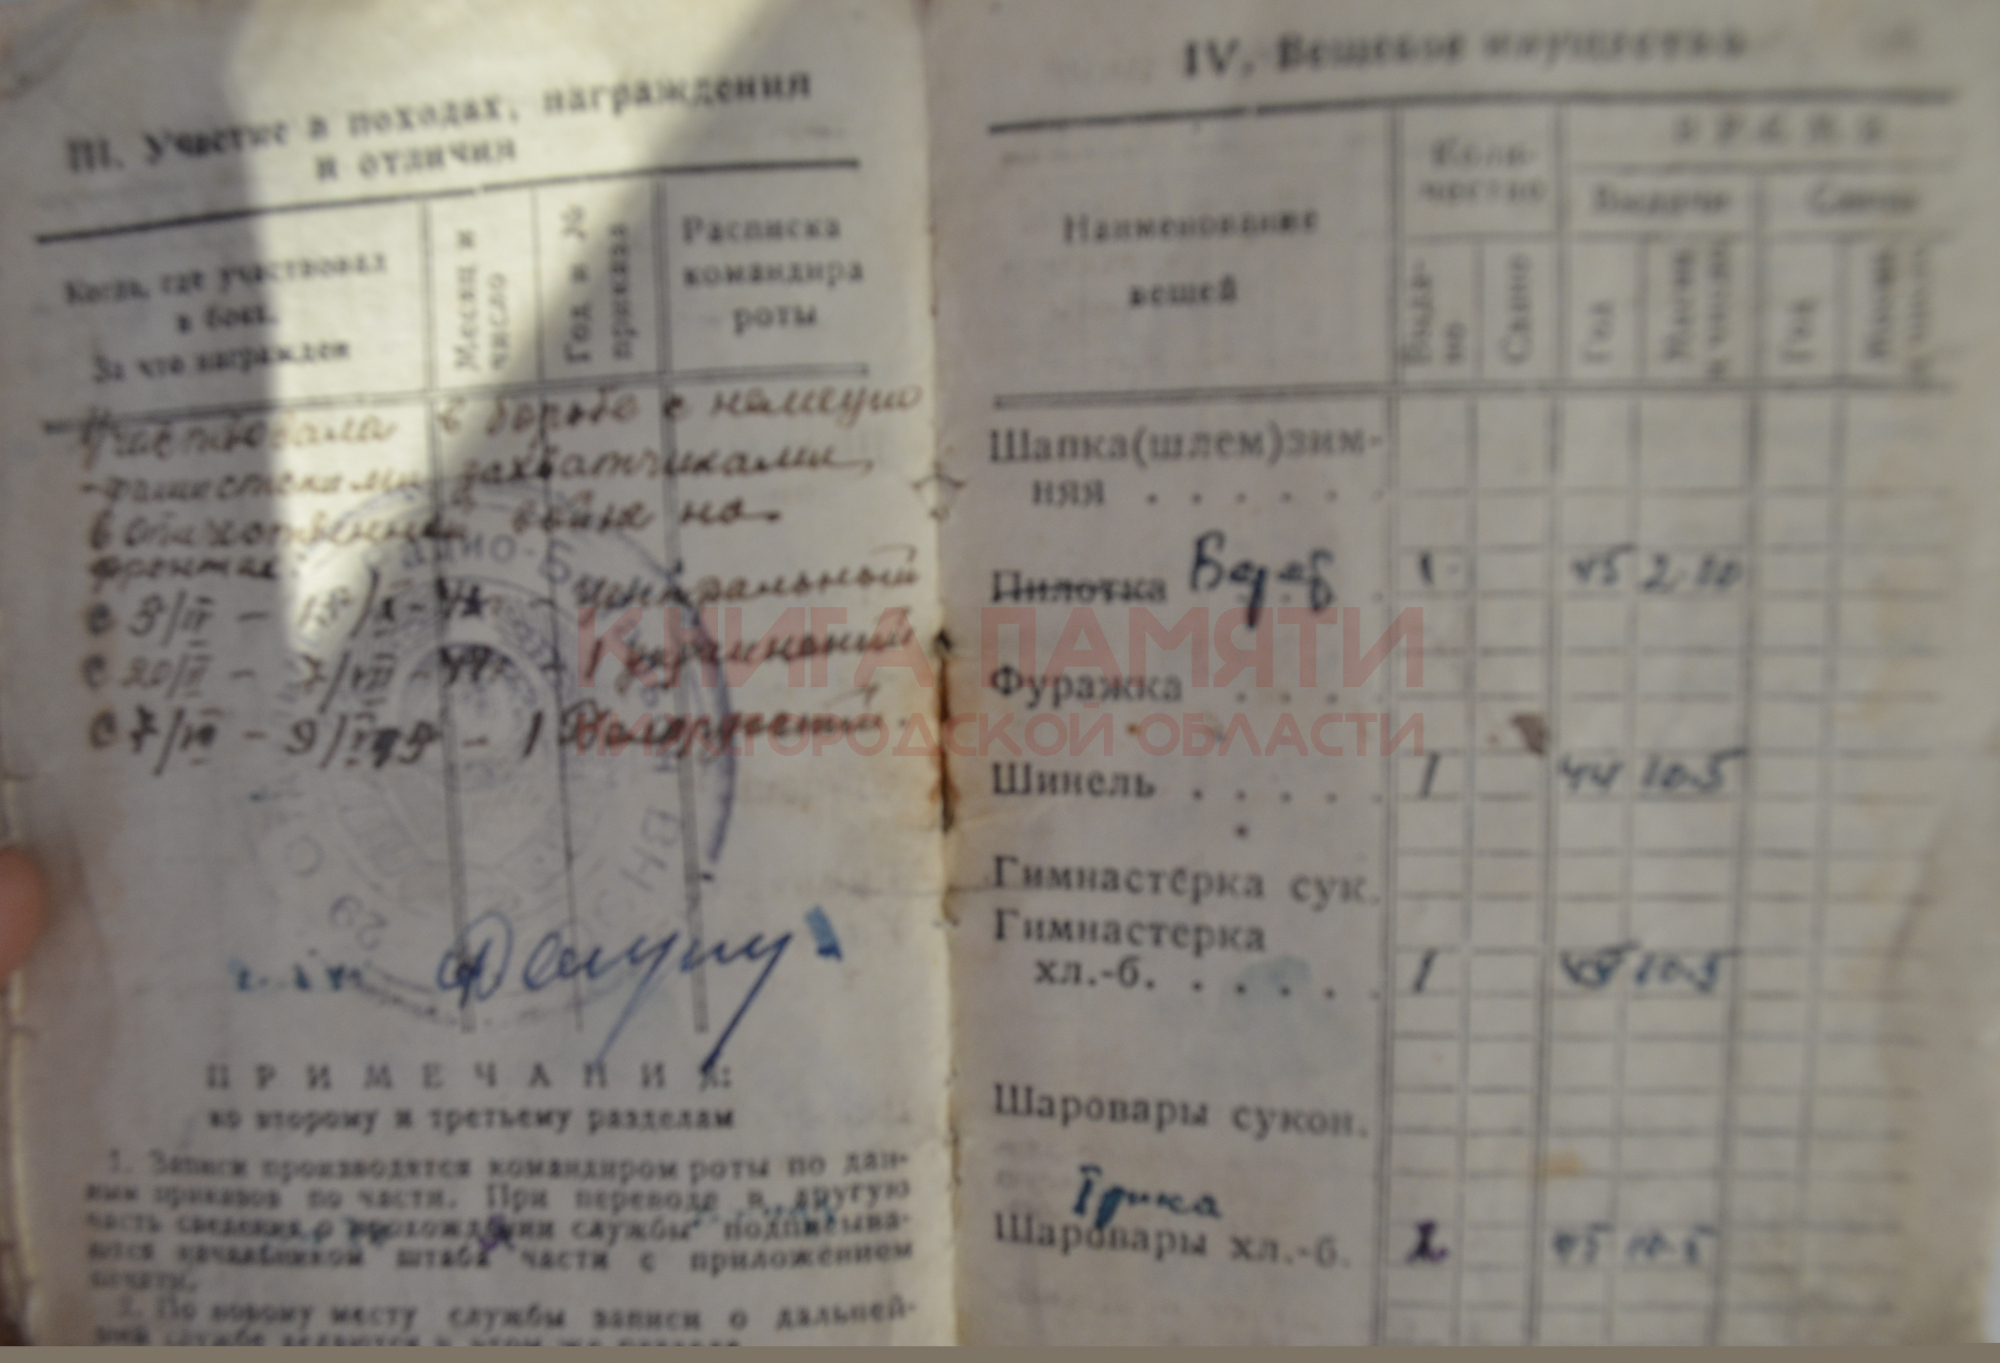 III. Участие в походах, награждения
и отличия
Когда, где участвовал
в боях.
За что награжден
Месяц и
число
Год и №
приказа
Расписка
командира
роты
Участвовала в борьбе с немецко
-фашистскими захватчиками,
в отечественной войне на
фронтах
с 9/II - 18/X- - центральный
с 20/II - 7/VIII - 1 украинский
- 9/ - 1
29
ПРИМЕЧАНИЯ:
ко второму и третьему разделам
1. Записи производятся командиром роты по дан-
ным приказов по части. При переводе в другую
часть сведения о прохождении службы подписыва-
ются начальником штаба части с приложением
печати.
2. По новому месту службы записи о дальней-
шей службе ведаются в этом же разделе.
IV. Вещевое имущество
Наименование
вещей
Коли-
чество
Время
Выдачи
Сдачи
Выда-
но
Сдано
Год
Месяц
и число
Год
Месяц
и число
Шапка(шлем)зим-
няя . . . . .
Пилотка Берет . 1 45 2.10
Фуражка . . . .
Шинель . . . . . 1 44 10.5
Гимнастёрка сук.
Гимнастерка
хл.-б. . . . . . 1 45 10.5
Шаровары сукон.
Шаровары хл.-б. 45 10.5
КНИГА ПАМЯТИ
НИЖЕГОРОДСКОЙ ОБЛАСТИ